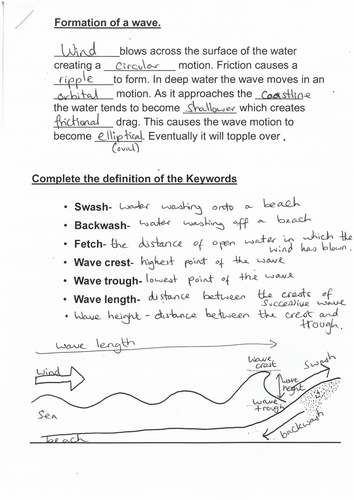 Formation of a wave.
Wind blows across the surface of the water
creating a circular motion. Friction causes a
ripple to form. In deep water the wave moves in an
orbital motion. As it approaches the coastline
the water tends to become shallower which creates
frictional drag. This causes the wave motion to
become elliptical. Eventually it will topple over.
(oval)
Complete the definition of the Keywords
• Swash- water washing onto a beach
• Backwash- water washing off a beach
• Fetch- the distance of open water in which the
wind has blown.
• Wave crest- highest point of the wave
• Wave trough- lowest point of the wave
• Wave length- distance between the crests of
successive wave
• Wave height - distance between the crest and
trough.
wave length
wave
crest
swash
Wind
wave
height
wave
trough
Sea
backwash
beach